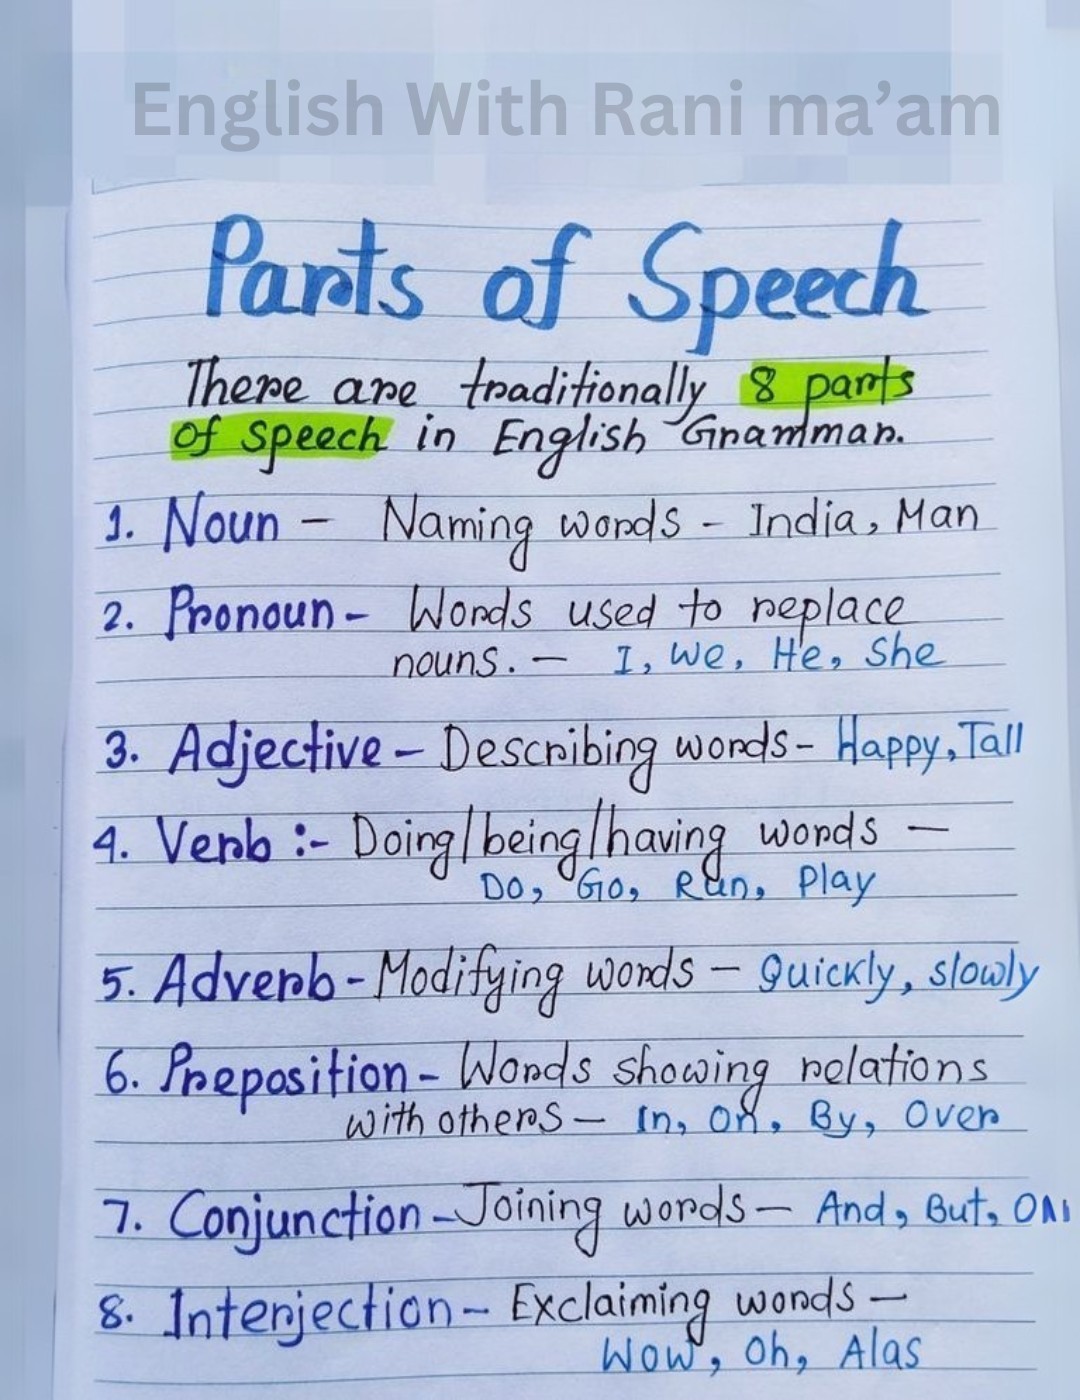 English With Rani ma’am
Parts of Speech
There are traditionally 8 parts
of speech in English Grammar.
1. Noun – Naming words – India, Man
2. Pronoun – Words used to replace
nouns. – I, We, He, She
3. Adjective – Describing words – Happy, Tall
4. Verb :- Doing/being/having words –
Do, Go, Run, Play
5. Adverb – Modifying words – Quickly, slowly
6. Preposition – Words showing relations
with others – In, On, By, Over
7. Conjunction – Joining words – And, But, Or
8. Interjection – Exclaiming words –
Wow, Oh, Alas